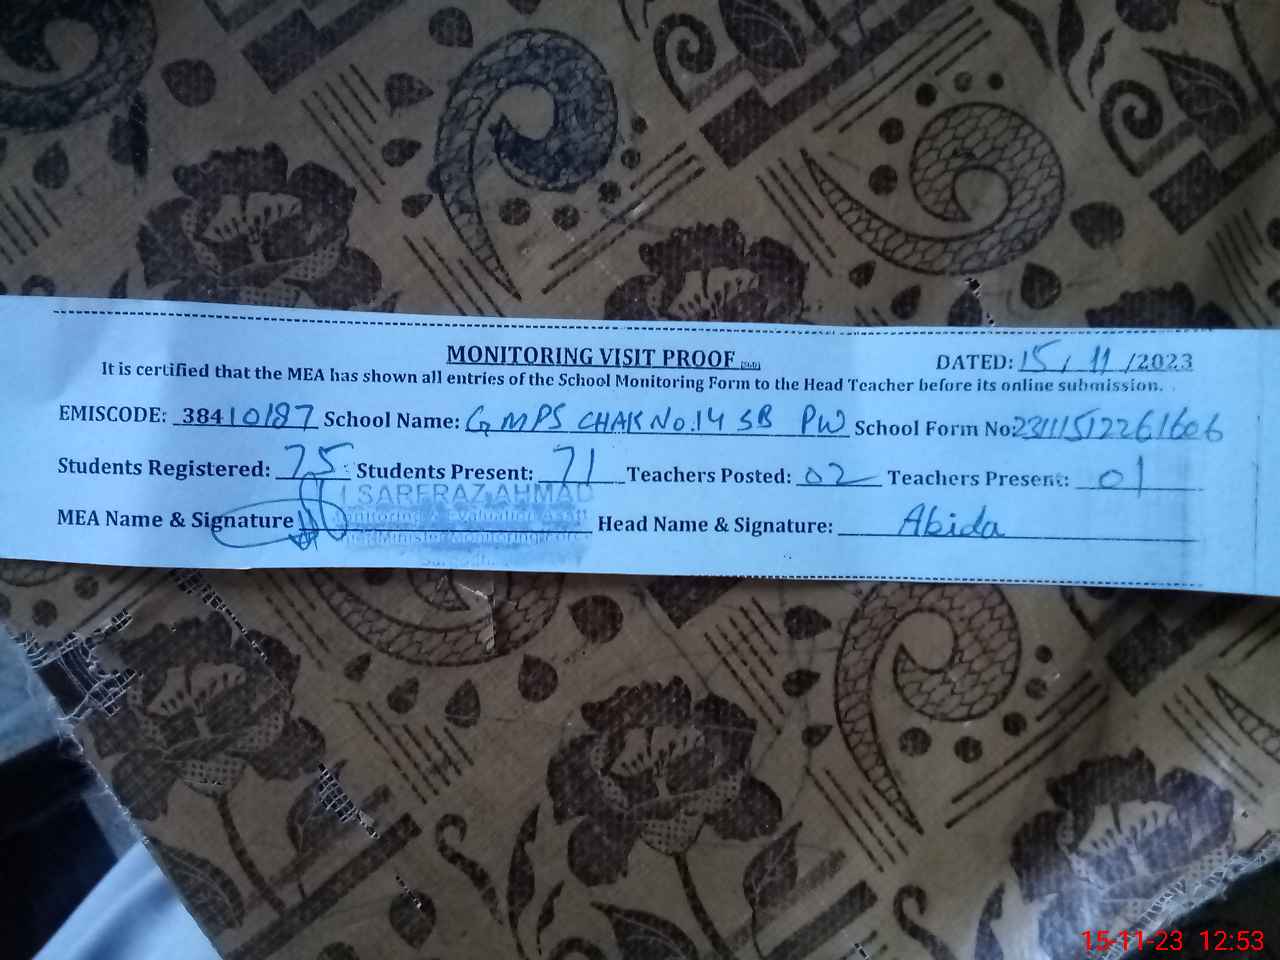 MONITORING VISIT PROOF
DATED: 15/11/2023
It is certified that the MEA has shown all entries of the School Monitoring Form to the Head Teacher before its online submission.
EMISCODE: 38410187 School Name: GMPS CHAK No.14 SB PW School Form No 23111512261606
Students Registered: 75 Students Present: 71 Teachers Posted: 02 Teachers Present: 01
SARFRAZ AHMAD
MEA Name & Signature Head Name & Signature: Abida
Monitoring & Evaluation Asstt
15-11-23 12:53